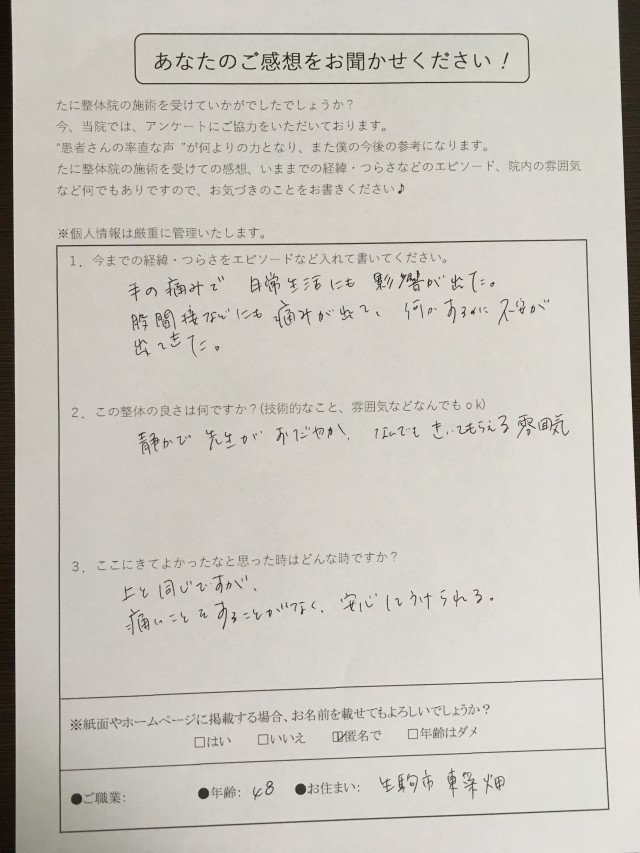 あなたのご感想をお聞かせください！
たに整体院の施術を受けていかがでしたでしょうか？
今、当院では、アンケートにご協力をいただいております。
“患者さんの率直な声 ”が何よりの力となり、また僕の今後の参考になります。
たに整体院の施術を受けての感想、いままでの経緯・つらさなどのエピソード、院内の雰囲気
など何でもありですので、お気づきのことをお書きください♪
※個人情報は厳重に管理いたします。
1．今までの経緯・つらさをエピソードなど入れて書いてください。
手の痛みで 日常生活にも 影響が出た。
股間接などにも 痛みが出て、 何かあるかに 不安が
出てきた。
2．この整体の良さは何ですか？(技術的なこと、雰囲気などなんでもｏｋ)
静かで 先生が おだやか、 なんでも きいてもらえる 雰囲気
3．ここにきてよかったなと思った時はどんな時ですか？
上と同じですが、
痛いことをすることがなく、安心してうけられる。
※紙面やホームページに掲載する場合、お名前を載せてもよろしいでしょうか？
□はい □いいえ ☑匿名で □年齢はダメ
●ご職業： ●年齢：48 ●お住まい： 生駒市 東菜畑